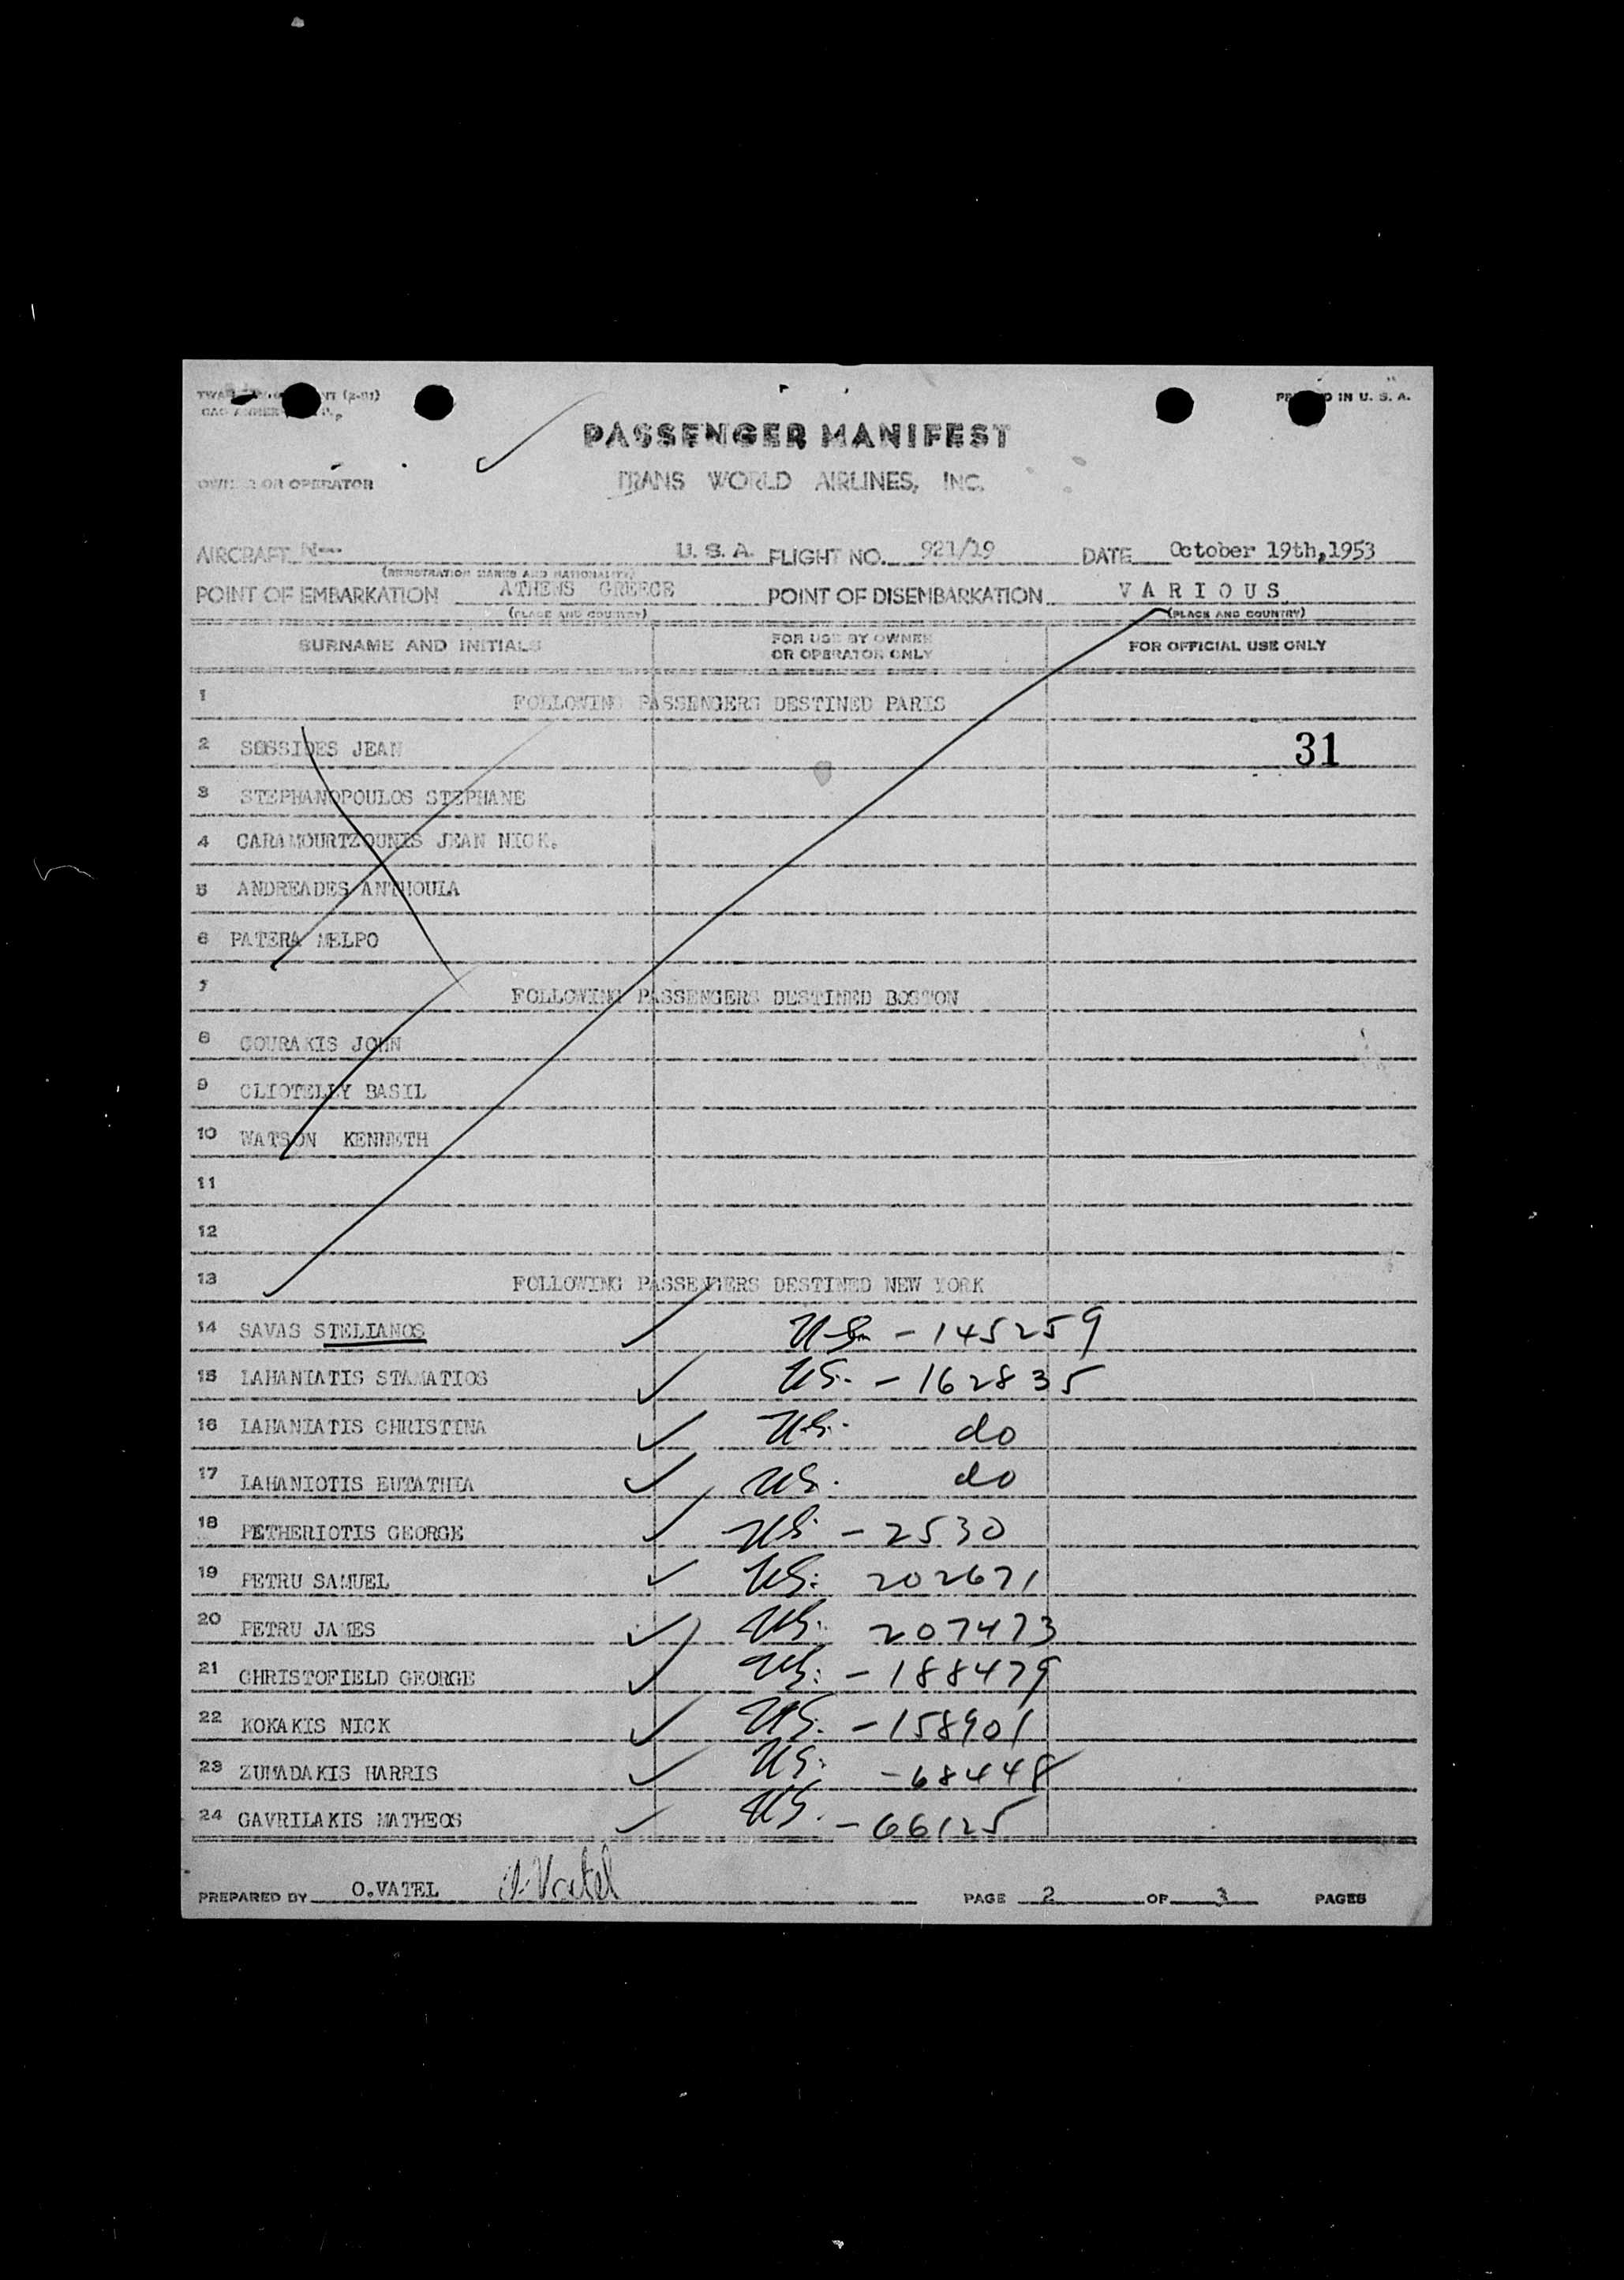 PASSENGER MANIFEST
OWNER OR OPERATOR TRANS WORLD AIRLINES, INC.
AIRCRAFT N--- U. S. A. FLIGHT NO. 921/19 DATE October 19th,1953
(REGISTRATION MARKS AND NATIONALITY)
POINT OF EMBARKATION ATHENS GREECE POINT OF DISEMBARKATION V A R I O U S
(PLACE AND COUNTRY) (PLACE AND COUNTRY)
SURNAME AND INITIALS FOR USE BY OWNER OR OPERATOR ONLY FOR OFFICIAL USE ONLY
1 FOLLOWING PASSENGERS DESTINED PARIS
2 SOSSIDES JEAN 31
3 STEPHANOPOULOS STEPHANE
4 CARAMOURTZOUNIS JEAN NICK.
5 ANDREADES ANTHOULA
6 PATERA MELPO
7 FOLLOWING PASSENGERS DESTINED BOSTON
8 GOURAKIS JOHN
9 CLIOTELLY BASIL
10 WATSON KENNETH
11
12
13 FOLLOWING PASSENGERS DESTINED NEW YORK
14 SAVAS STELIANOS US - 145259
15 LAHANIATIS STAMATIOS US. - 162835
16 LAHANIATIS CHRISTINA US. do
17 LAHANIOTIS EUTATHIA US. do
18 PETHERIOTIS GEORGE US. - 2530
19 PETRU SAMUEL US. 202671
20 PETRU JAMES US. 207473
21 CHRISTOFIELD GEORGE US. - 188479
22 KOKAKIS NICK US. - 158901
23 ZUMADAKIS HARRIS US. - 68448
24 GAVRILAKIS MATHEOS US. - 66125
PREPARED BY O.VATEL O. Vatel PAGE 2 OF 3 PAGES